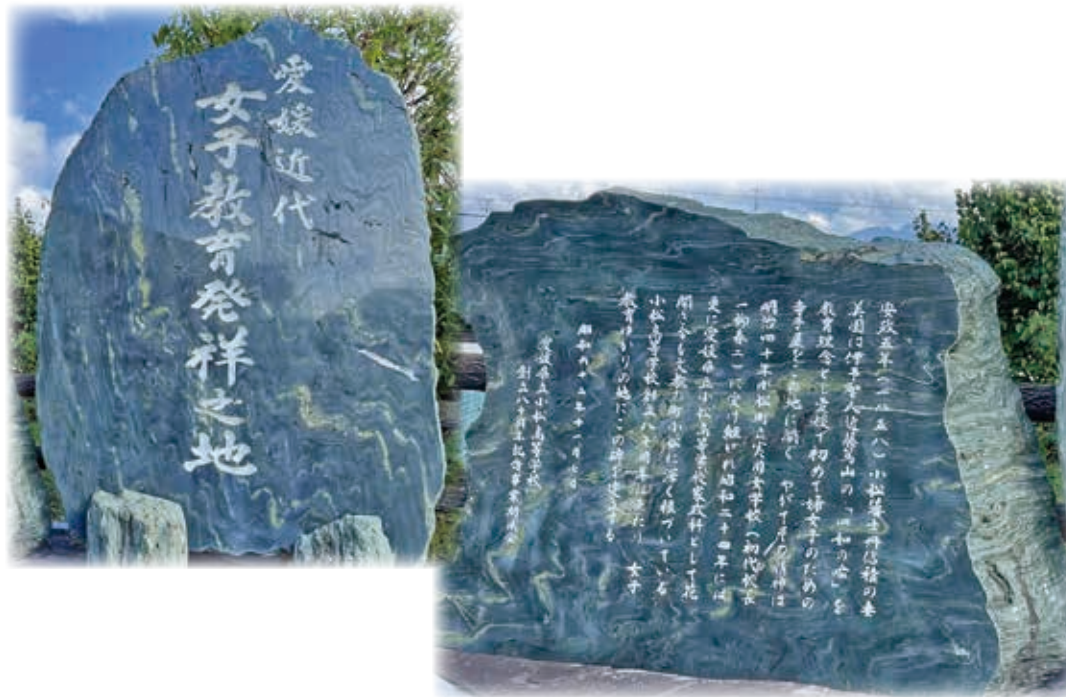 愛媛近代
女子教育発祥之地
安政五年(一八五八)小松藩士丹信積の妻
美園は伊予聖人近藤篤山の「四和の心」を
教育理念とし愛媛で初めて婦女子のための
寺子屋をこの地に開く やがてその精神は
明治四十年小松町立実用女学校(初代校長
一柳春二)に受け継がれ昭和二十四年には
更に愛媛県立小松高等学校家政科として花
開き今も文教の町小松に深く根づいている
小松高等学校創立八十周年に当たり 女子
教育ゆかりの地にこの碑を建立する
年十一月
愛媛県立小松高等学校
創立八十周年記念事業期成会